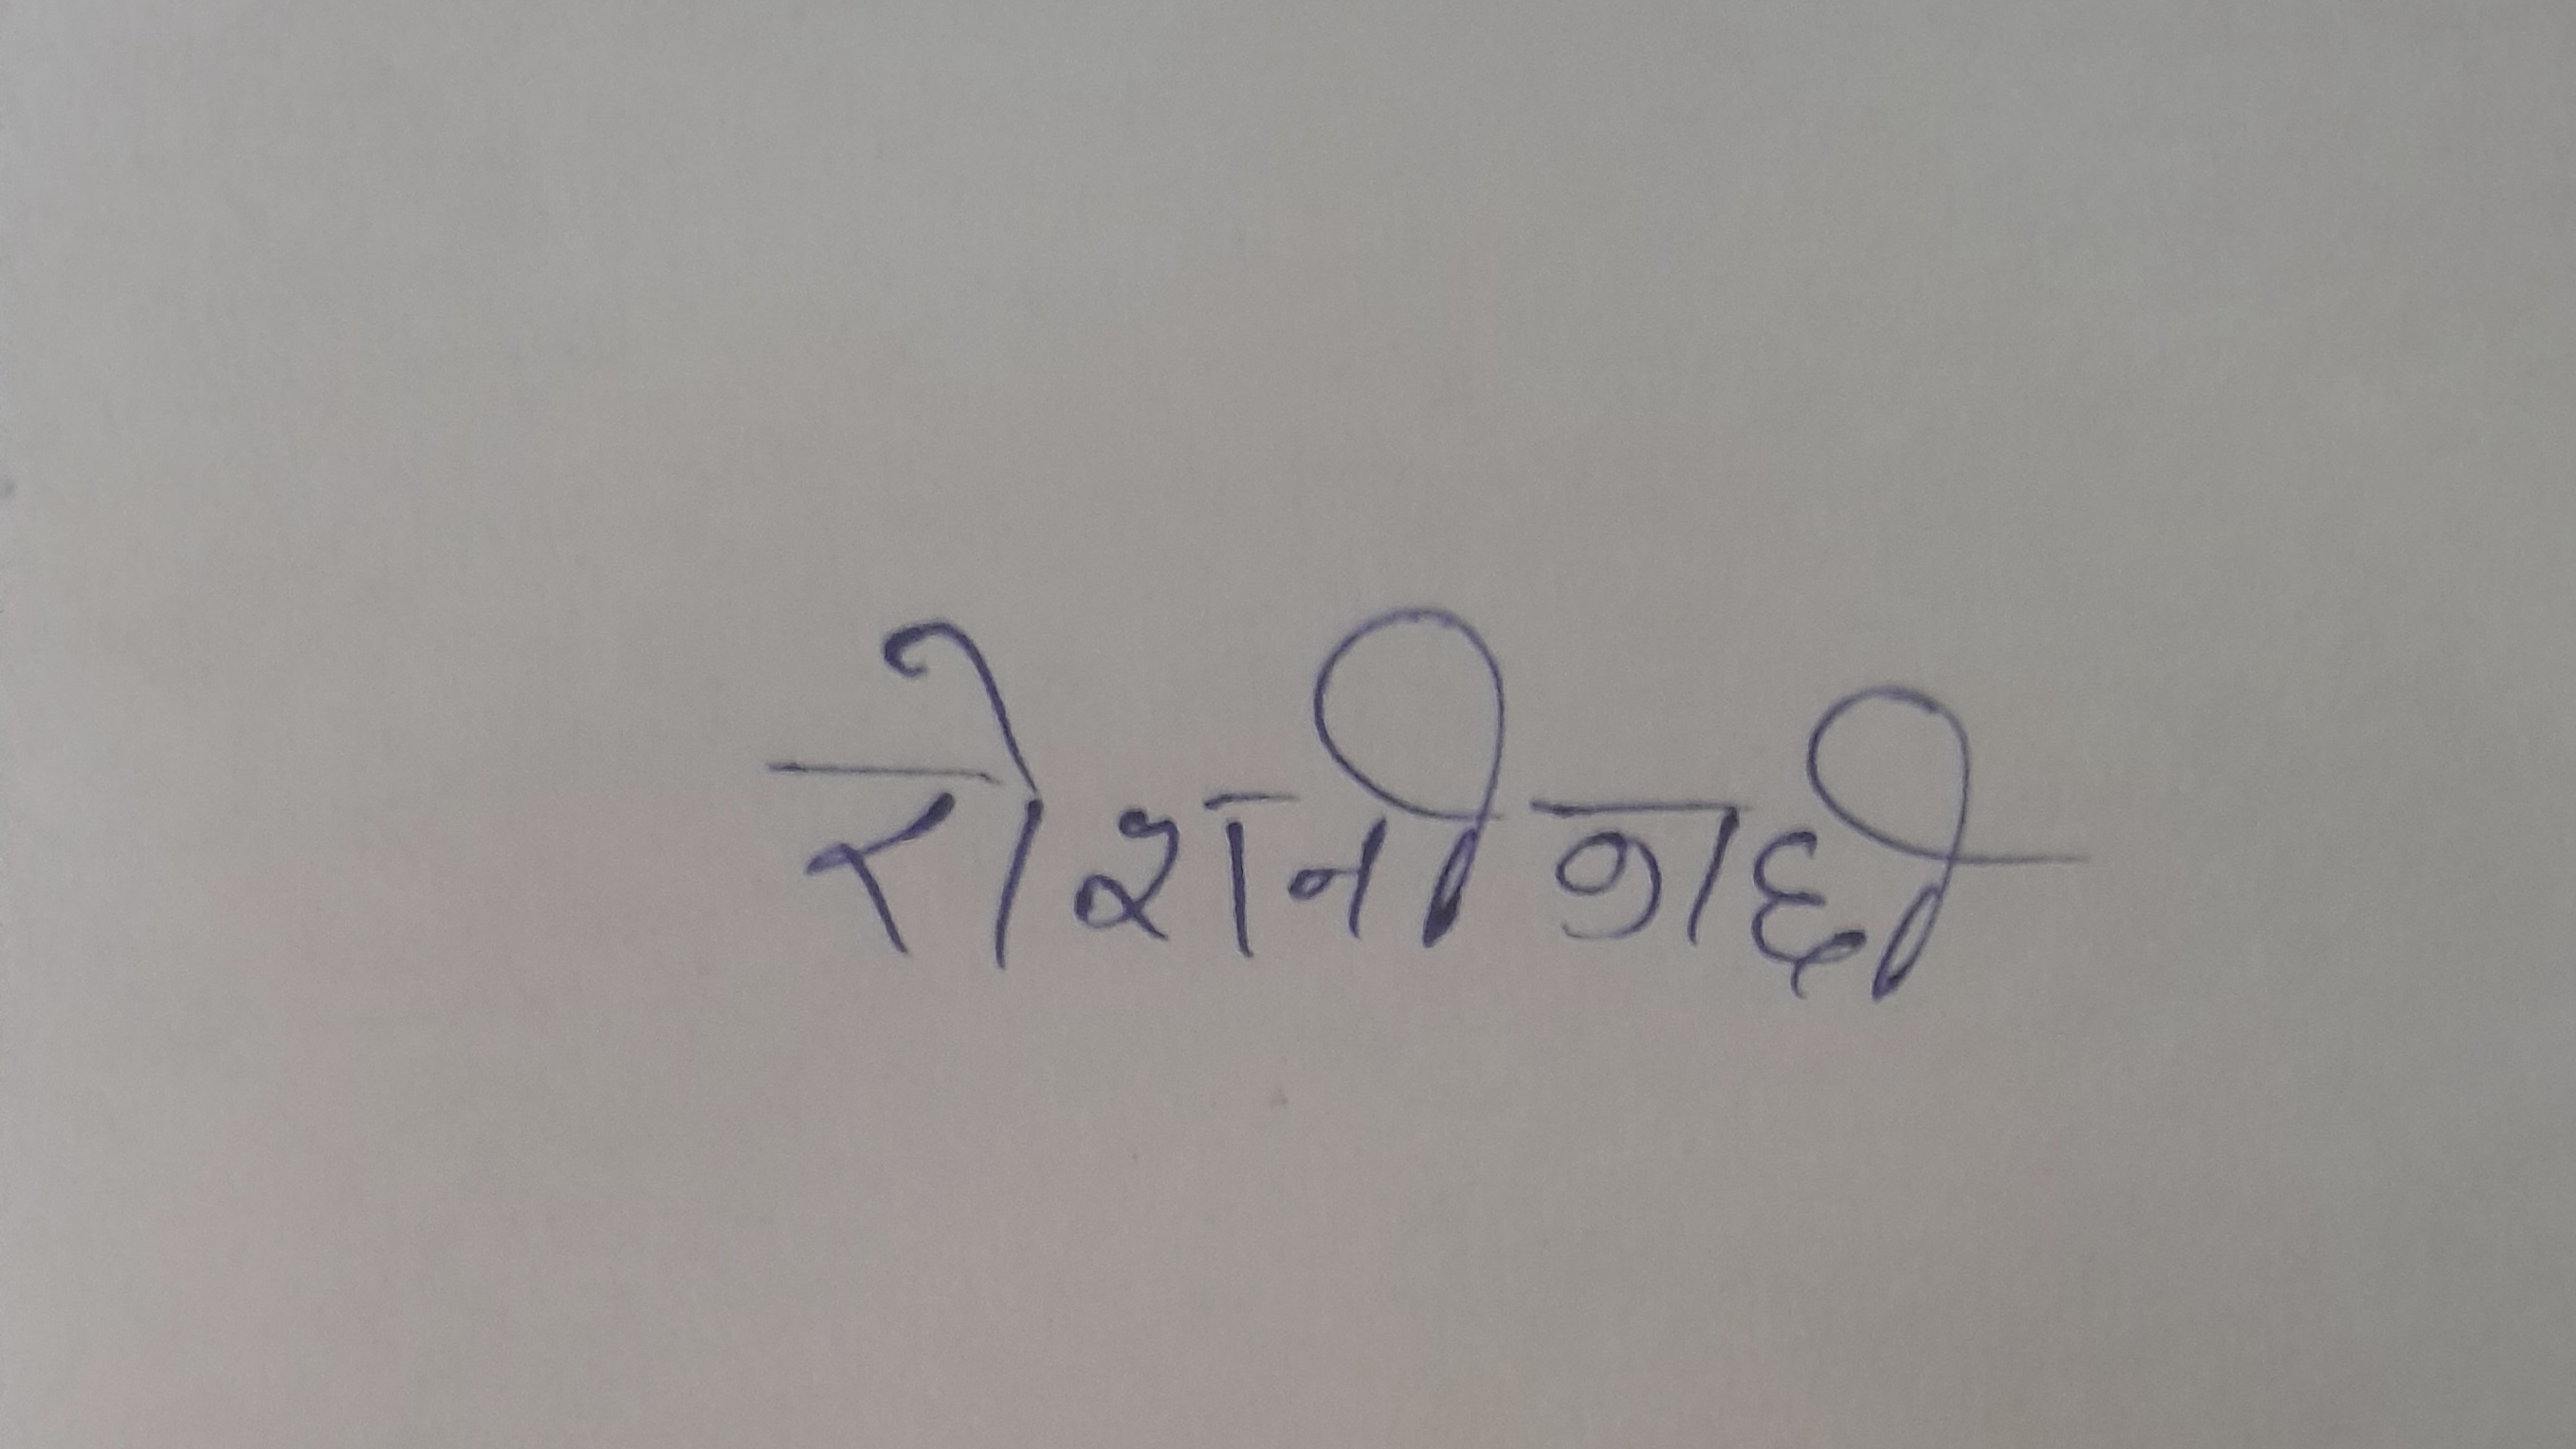 रोशनी काछी